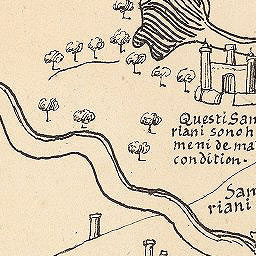 Questi Sam
riani sono h
meni de ma
condition.
Sam
riani